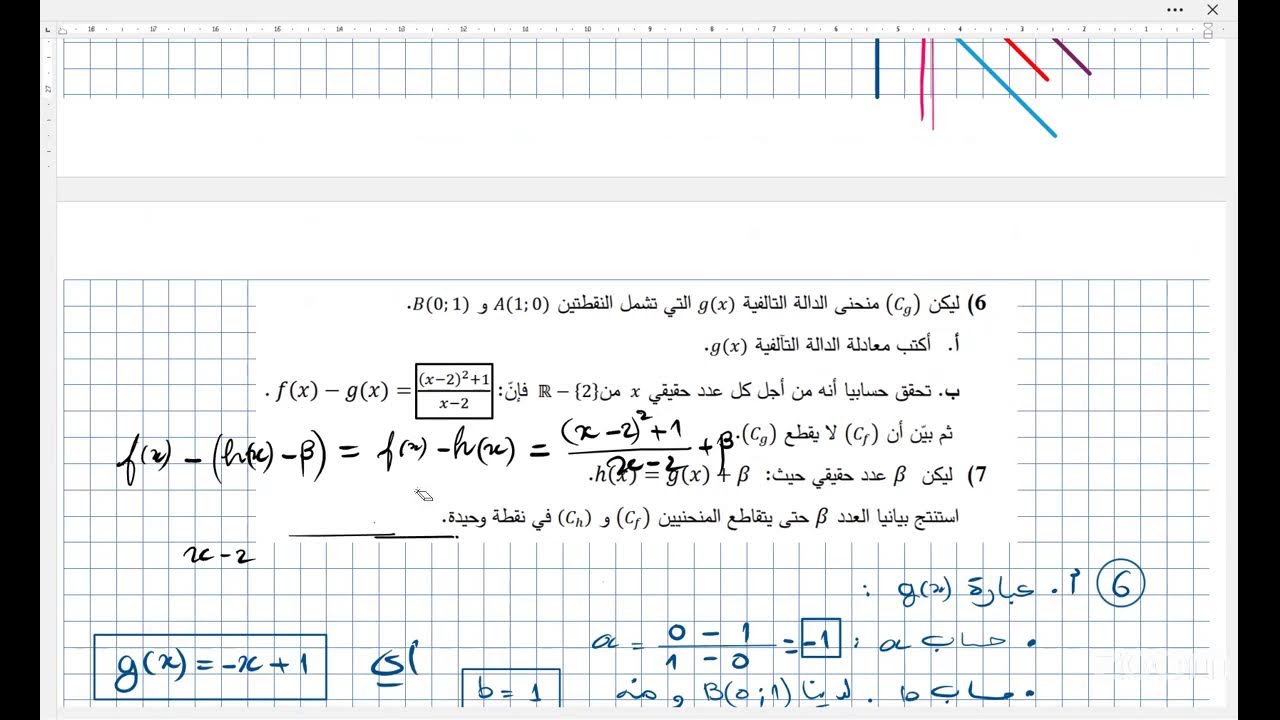 6) ليكن (C_g) منحنى الدالة التالفية g(x) التي تشمل النقطتين A(1; 0) و B(0; 1).
أ. أكتب معادلة الدالة التآلفية g(x).
ب. تحقق حسابيا أنه من أجل كل عدد حقيقي x من ℝ − {2} فإنّ: f(x) − g(x) = ((x−2)²+1)/(x−2) .
ثم بيّن أن (C_f) لا يقطع (C_g).
f(x) − (h(x) − β) = f(x) − h(x) = ((x−2)²+1)/(x−2) + β
7) ليكن β عدد حقيقي حيث: h(x) = g(x) + β.
استنتج بيانيا العدد β حتى يتقاطع المنحنيين (C_f) و (C_h) في نقطة وحيدة.
x − 2
6 أ. عبارة g(x) :
• حساب a : a = (0 − 1)/(1 − 0) = -1
• حساب b . لدينا B(0;1) و منه b = 1
أي g(x) = -x + 1